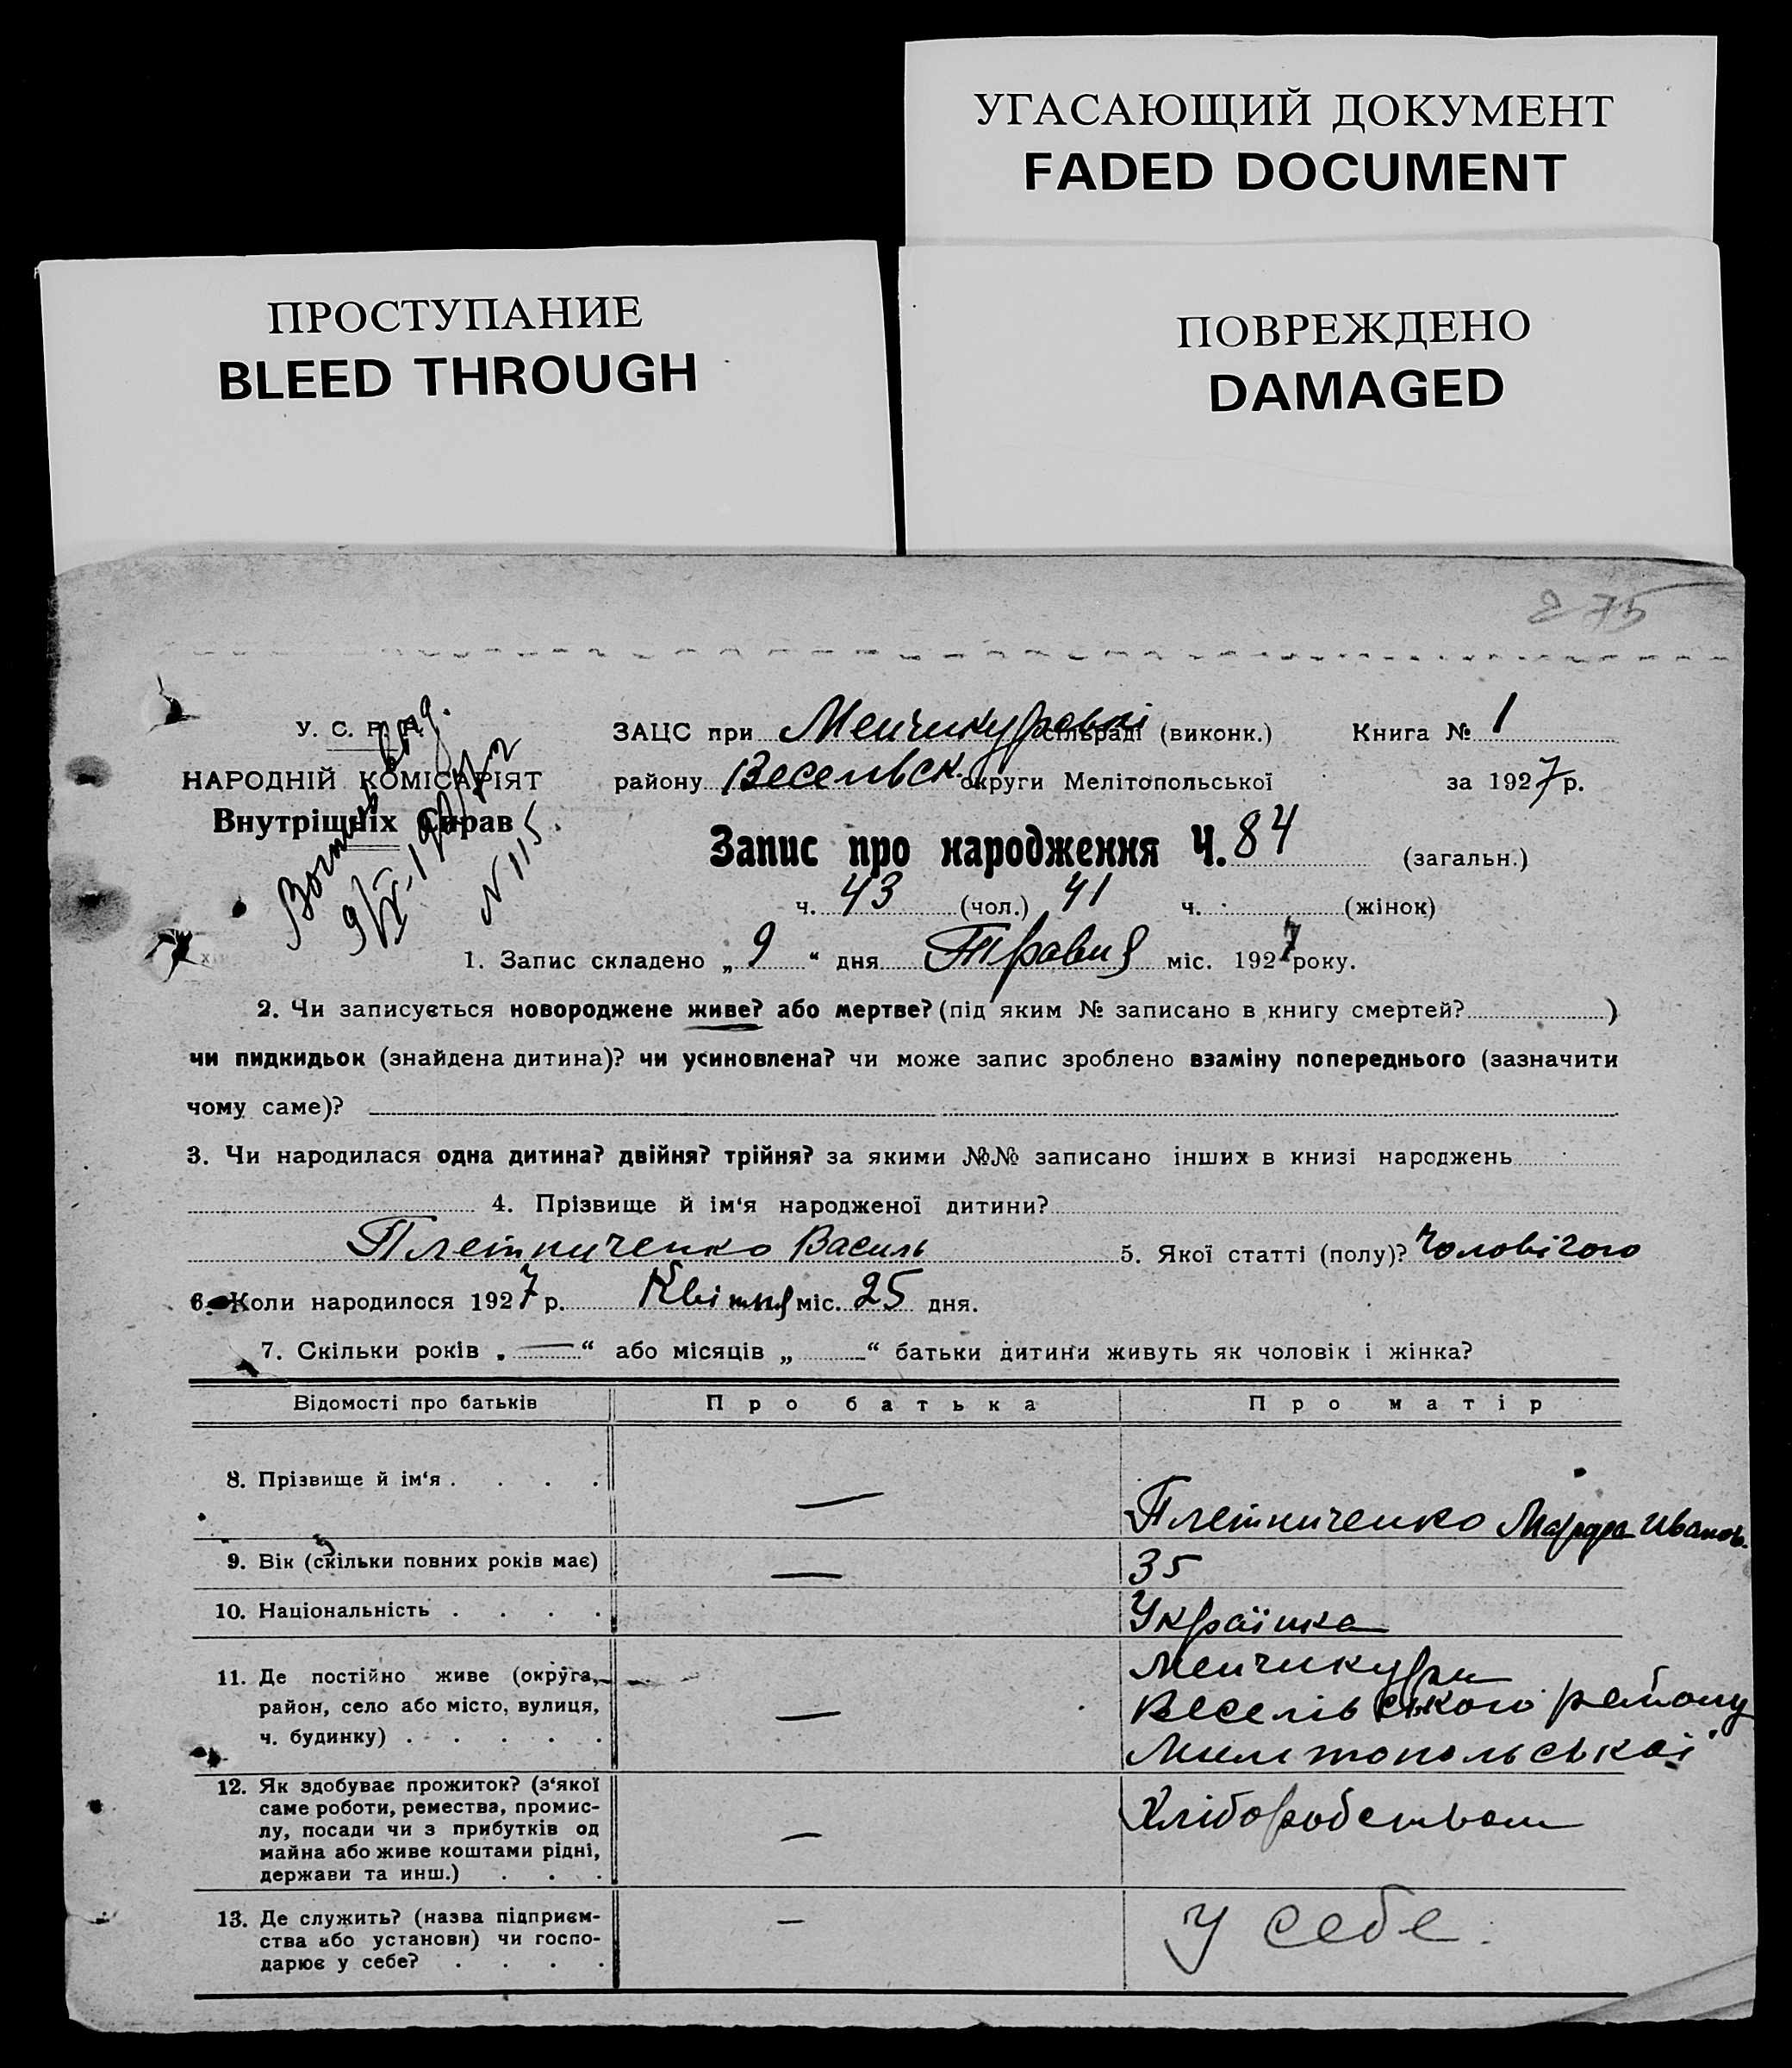 УГАСАЮЩИЙ ДОКУМЕНТ
FADED DOCUMENT
ПРОСТУПАНИЕ
BLEED THROUGH
ПОВРЕЖДЕНО
DAMAGED
275
У. С. Р. Р.
НАРОДНІЙ КОМІСАРІЯТ
Внутрішніх Справ
N 115
ЗАЦС при Менчикуровкі сільраді (виконк.) Книга № 1
району Весельск. округи Мелітопольської за 1927 р.
Запис про народження Ч. 84 (загальн.)
ч. 43 (чол.) 41 ч. (жінок)
1. Запис складено „ 9 “ дня Травня міс. 1927 року.
2. Чи записується новороджене живе? або мертве? (під яким № записано в книгу смертей? )
чи пидкидьок (знайдена дитина)? чи усиновлена? чи може запис зроблено взаміну попереднього (зазначити
чому саме)?
3. Чи народилася одна дитина? двійня? трійня? за якими №№ записано інших в книзі народжень
4. Прізвище й ім‘я народженої дитини?
Плетниченко Василь 5. Якої статті (полу)? Чоловічого
6. Коли народилося 1927 р. Квітня міс. 25 дня.
7. Скільки років „ — “ або місяців „ “ батьки дитини живуть як чоловік і жінка?
Відомості про батьків Про батька Про матір
8. Прізвище й ім‘я . . . . — Плетниченко Марфа Иванов.
9. Вік (скільки повних років має) — 35
10. Національність . . . . Українка
11. Де постійно живе (округа,
район, село або місто, вулиця,
ч. будинку) . . . . . —
Менчикури
Веселівського району
Милитопольськоі
12. Як здобуває прожиток? (з‘якої
саме роботи, ремества, промис-
лу, посади чи з прибутків од
майна або живе коштами рідні,
держави та инш.) . . . —
Хліборобством
13. Де служить? (назва підприєм-
ства або установи) чи госпо-
дарює у себе? . . . . —
У себе.